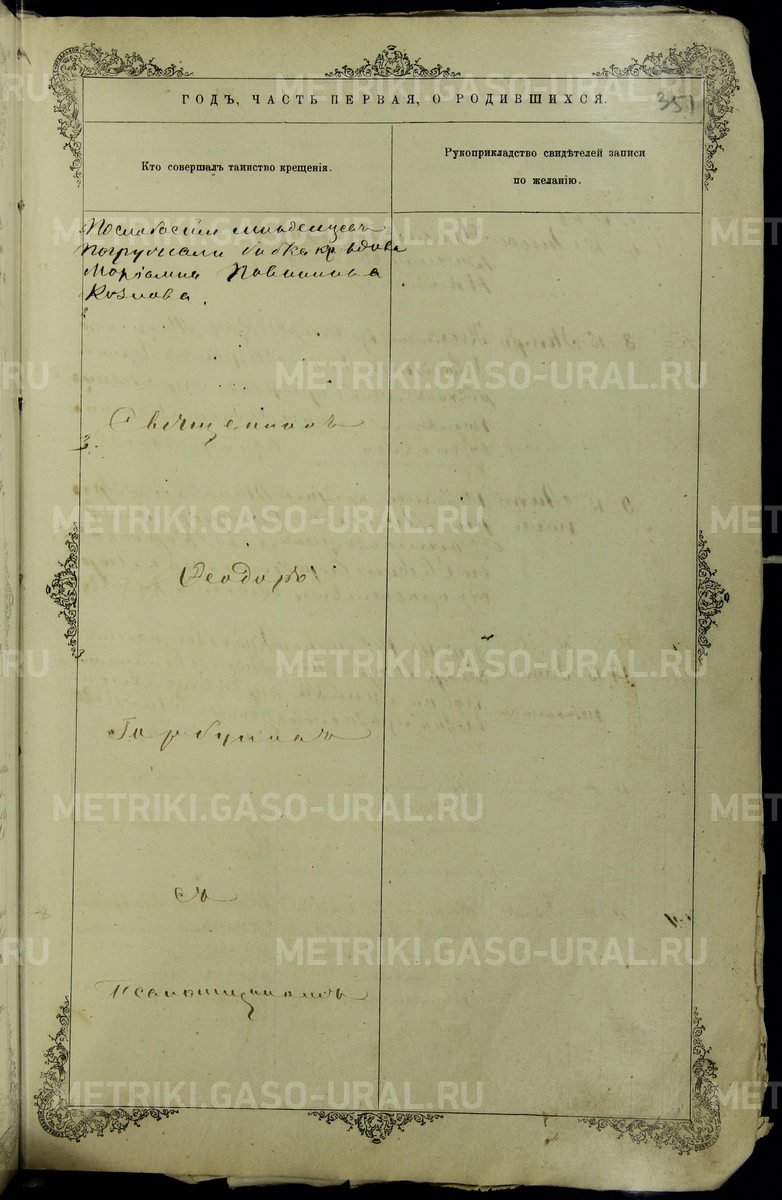 ГОДЪ, ЧАСТЬ ПЕРВАЯ, О РОДИВШИХСЯ.
351
Кто совершалъ таинство крещенія.
Рукоприкладство свидѣтелей записи
по желанію.
По слабости младенцевъ
погружали бабка кр. вдова
Козлова.
Священникъ
Ѳеодоръ
Горбуновъ
съ
псаломщикомъ
METRIKI.GASO-URAL.RU